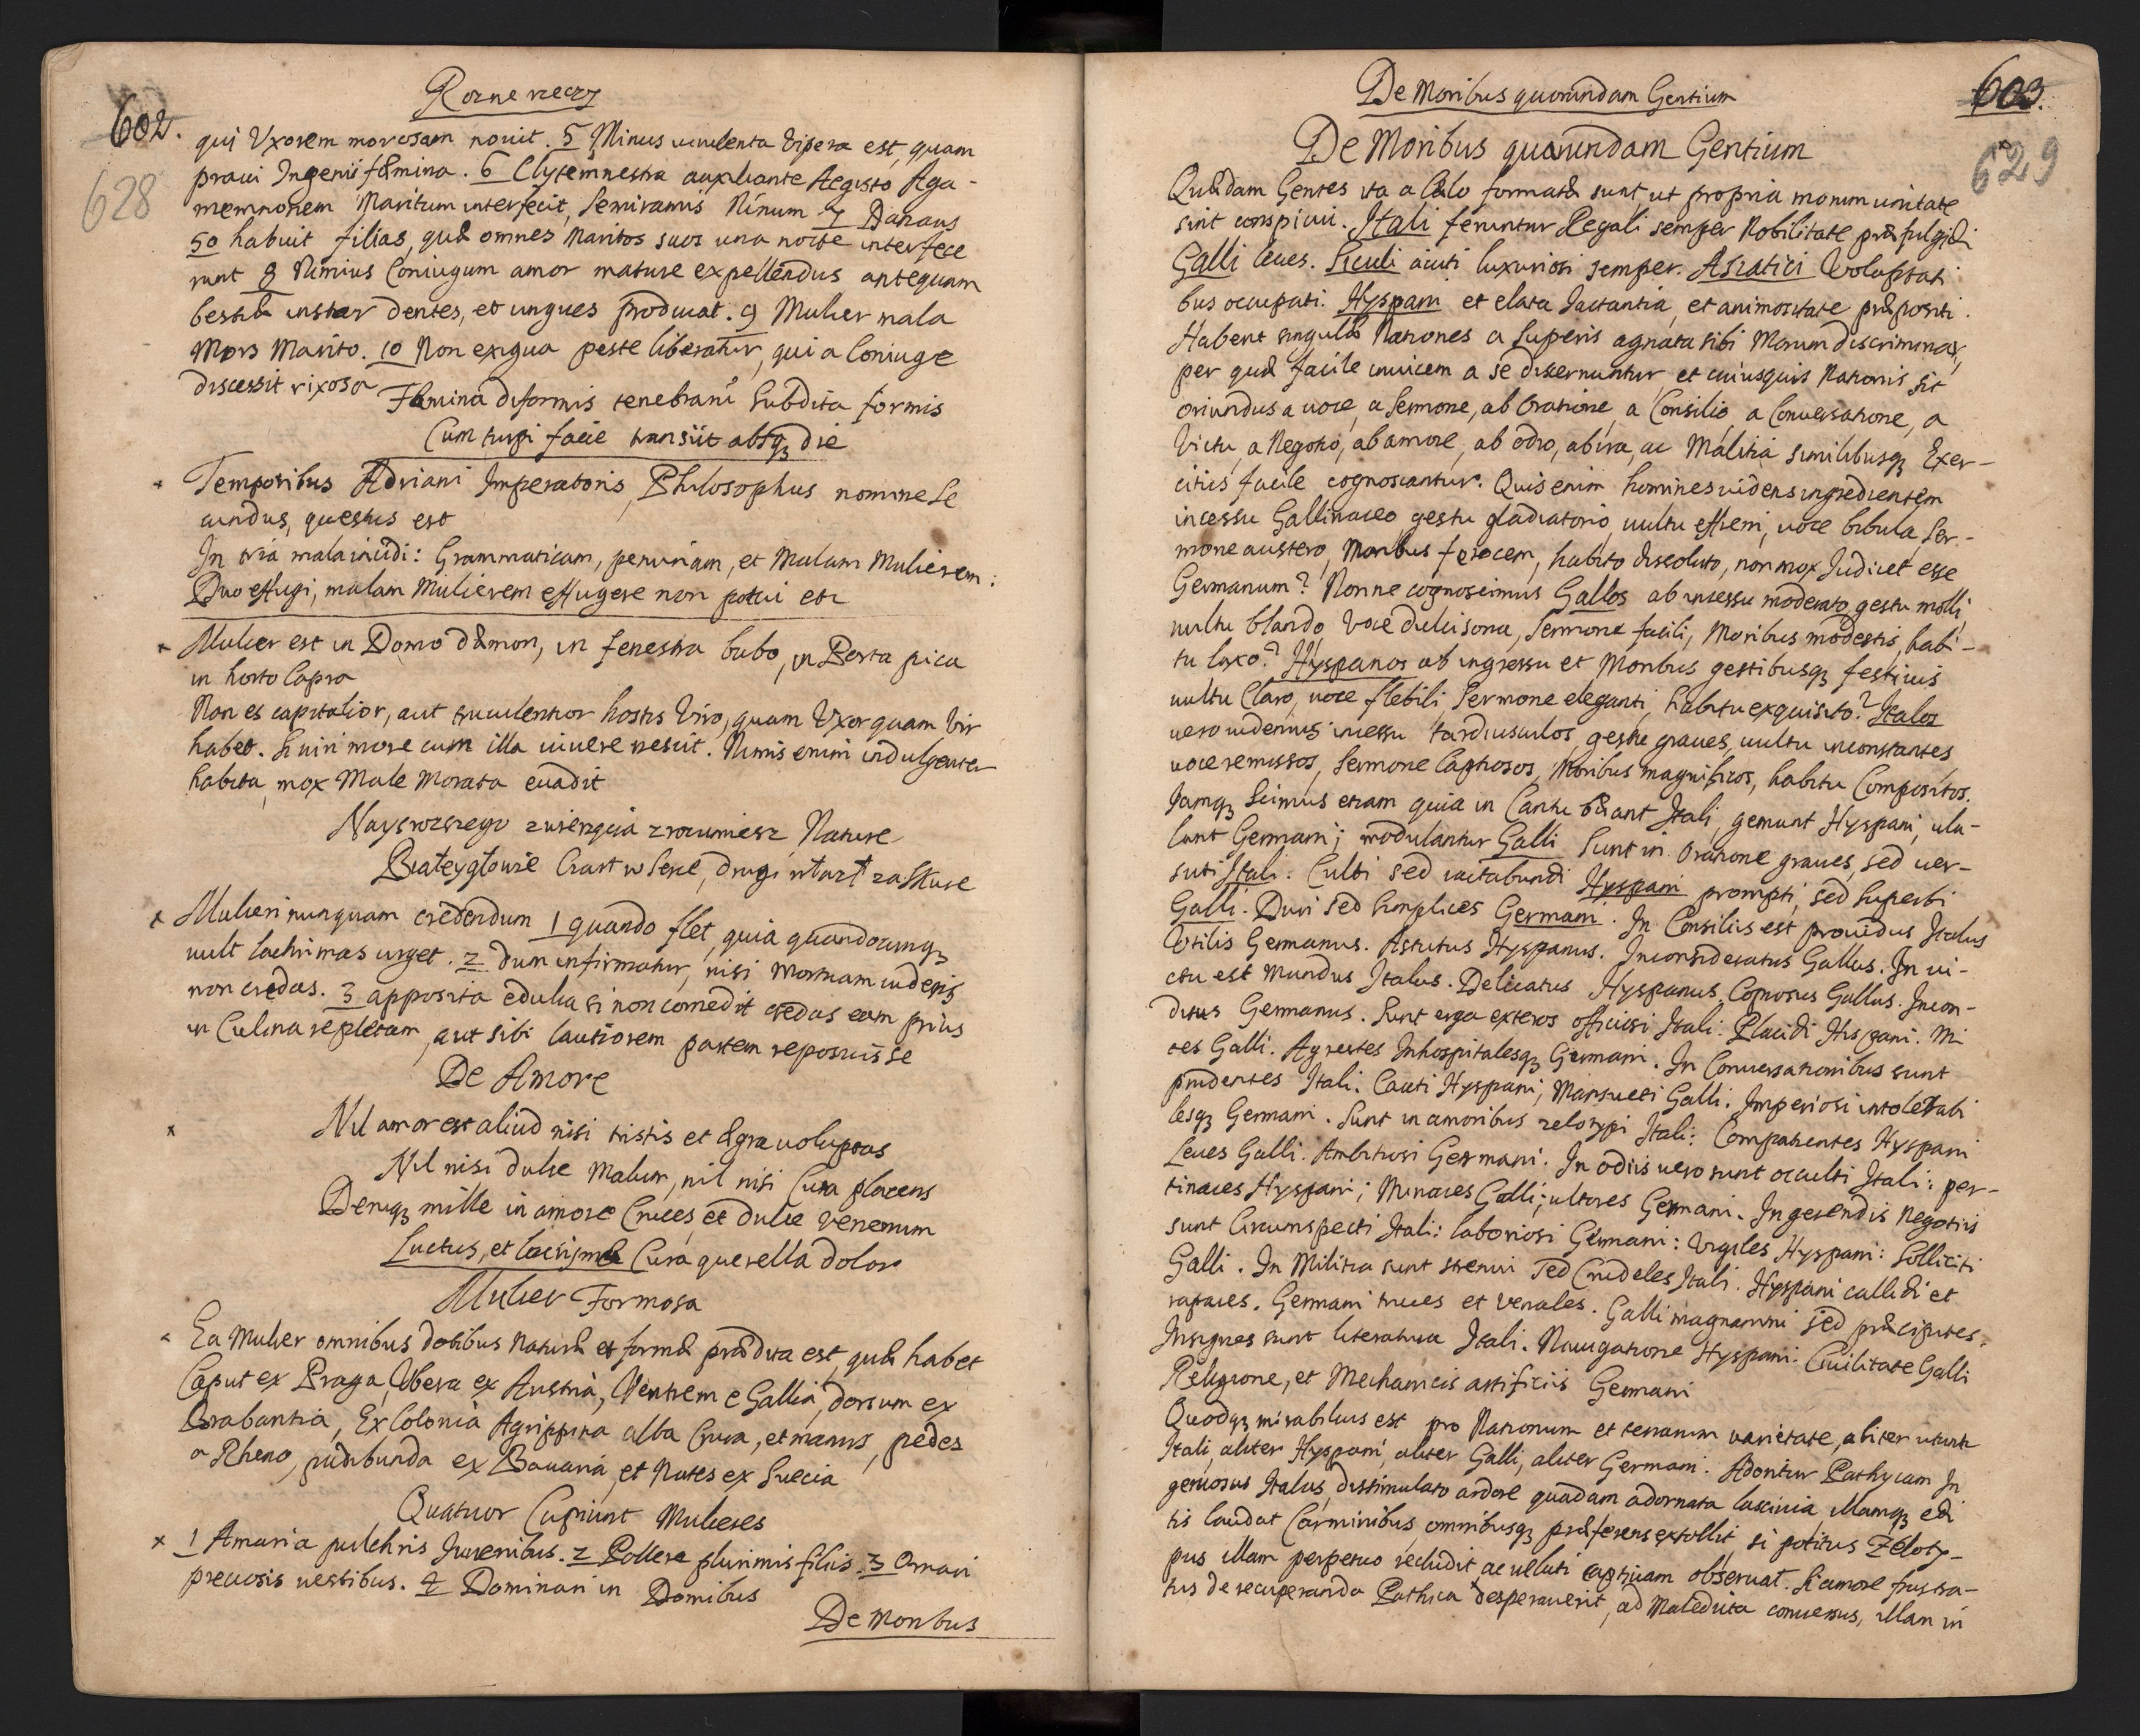 Rozne rzeczy
602.
628
qui Uxorem morosam novit. 5 Minus virulenta Vipera est, quam
praui Ingenii fæmina. 6 Clytemnestra auxiliante Aegisto Aga-
memnonem Maritum interfecit, Semiramis Ninum 7 Danaus
50 habuit filias, quæ omnes Maritos suos una nocte interfece
runt 8 Nimius Coniugum amor mature expellendus antequam
bestiæ instar dentes, et ungues producat. 9 Mulier mala
Mors Marito. 10 Non exigua peste liberatur, qui a Coniuge
discessit rixosa
Fæmina diformis tenebrarū subdita formis
Cum turpi facie transiit absqꝫ die
x Temporibus Adriani Imperatoris, Philosophus nomine Se
cundus, questus est
In tria mala incidi: Grammaticam, penuriam, et Malam Mulierem:
Duo effugi, malam Mulierem effugere non potui etc
x Mulier est in Domo dæmon, in fenestra bubo, in Porta pica
in horto Capra
Non es capitalior, aut truculentior hostis Viro, quam Uxor quam Vir
habet. Si viri more cum illa vivere nescit. Nimis enim indulgenter
habita, mox Male Morata evadit
Naysrozszego zwierzęcia zrozumiesz Nature
Białeygłowie Czart w serce, drugi wlazł za skure
x Mulieri nunquam credendum 1 quando flet, quia quandocunqꝫ
vult lachrimas urget. 2 dum infirmatur, nisi Mortuam videris
non credas. 3 apposita edulia si non comedit credas eam prius
in Culina repletam, aut sibi lautiorem partem reposuisse
De Amore
x Nil amor est aliud nisi tristis et ægra voluptas
Nil nisi dulce Malum, nil nisi Cura placens
Deniqꝫ mille in amore Cruces, et dulce Venenum
Luctus, et lacrijmæ Cura querella dolor
Mulier Formosa
x Ea Mulier omnibus dotibus Naturæ et formæ prædita est, quæ habet
Caput ex Praga, Ubera ex Austria, Ventrem e Gallia, dorsum ex
Brabantia, Ex Colonia Agrippina alba Crura, et manus, pedes
a Rheno, pudibunda ex Bavaria, et Nates ex Suecia
Quatuor Cupiunt Mulieres
x 1 Amari a pulchris Juvenibus. 2 Pollere plurimis filiis. 3 Ornari
preciosis vestibus. 4 Dominari in Domibus
De Moribus
De Moribus quorundam Gentium
603.
629
De Moribus quarundam Gentium
Quædam Gentes ita a Cælo formatæ sunt, ut propria morum unitate
sint conspicui. Itali feruntur Regali semper Nobilitate præfulgidi
Galli leues. Siculi acuti luxuriosi semper. Asiatici Voluptati
bus occupati. Hyspani et elata Jactantia, et animositate præpositi.
Habent singulæ Nationes a Superis agnata sibi Morum discrimina,
per quæ facile invicem a se discernuntur, et cuiusquis Nationis sit
oriundus a voce, a Sermone, ab Oratione, a Consilio, a Conversatione, a
Victu, a Negotio, ab amore, ab odio, ab ira, ac Malitia similibusqꝫ Exer-
citiis facile cognoscantur. Quis enim homines videns ingredientem
incessu Gallinaceo gestu gladiatorio, uultu effreni, uoce bibula, Ser-
mone austero, Moribus ferocem, habito discoluto, non mox Judicet esse
Germanum? Nonne cognoscimus Gallos ab incessu moderato, gestu molli,
uultu blando, voce dulcisona, Sermone facili, Moribus modestis, habi-
tu laxo? Hyspanos ab ingressu et Moribus gestibusqꝫ festivis
uultu Claro, uoce flebili, Sermone eleganti, habitu exquisito? Italos
uero uidemus incessu tardiusculos, gestu graues, uultu inconstantes
uoce remissos, Sermone Captiosos, Moribus magnificos, habitu Compositos.
Jamqꝫ Scimus etiam quia in Cantu balant Itali, gemunt Hyspani, ulu-
lant Germani; modulantur Galli Sunt in Oratione graues, sed uer-
suti Itali. Culti sed iactabundi Hyspani prompti, sed superbi
Galli. Duri sed simplices Germani. In Consiliis est providus Italus
Utilis Germanus. Astutus Hyspanus. Inconsideratus Gallus. In ui-
ctu est Mundus Italus. Delicatus Hyspanus. Copiosus Gallus. Incon-
ditus Germanus. Sunt erga exteros officiosi Itali: Placidi Hispani. Mi
tes Galli. Agrestes Inhospitalesqꝫ Germani. In Conuersationibus sunt
prudentes Itali: Cauti Hyspani; Mansueti Galli: Imperiosi intolerabi
lesqꝫ Germani. Sunt in amoribus zelotypi Itali: Compatientes Hyspani
Leues Galli. Ambitiosi Germani. In odiis uero sunt occulti Itali: per-
tinaces Hyspani; Minaces Galli; ultores Germani. In gerendis Negotiis
sunt Circumspecti Itali: laboriosi Germani: Vigiles Hyspani: Solliciti
Galli. In Militia sunt strenui sed Crudeles Itali. Hyspani callidi et
rapaces. Germani truces et Venales. Galli magnanimi sed præcipites.
Insignes sunt literatura Itali. Nauigatione Hyspani. Ciuilitate Galli
Religione, et Mechanicis artificiis Germani
Quodqꝫ mirabilius est pro Nationum et terrarum varietate, aliter utuntur
Itali, aliter Hyspani, aliter Galli, aliter Germani. Adoritur Pathycam In
geniosus Italus, dissimulato ardore quadam adornata lasciuia illamqꝫ edi
tis laudat Carminibus, omnibusqꝫ præferens extollit, si potitus Zeloty-
pus illam perpetuo recludit, ac velluti captivam obseruat. Si amore frustra-
tus de recuperanda Pathica desperauerit, ad Maledicta conuersus, illam in